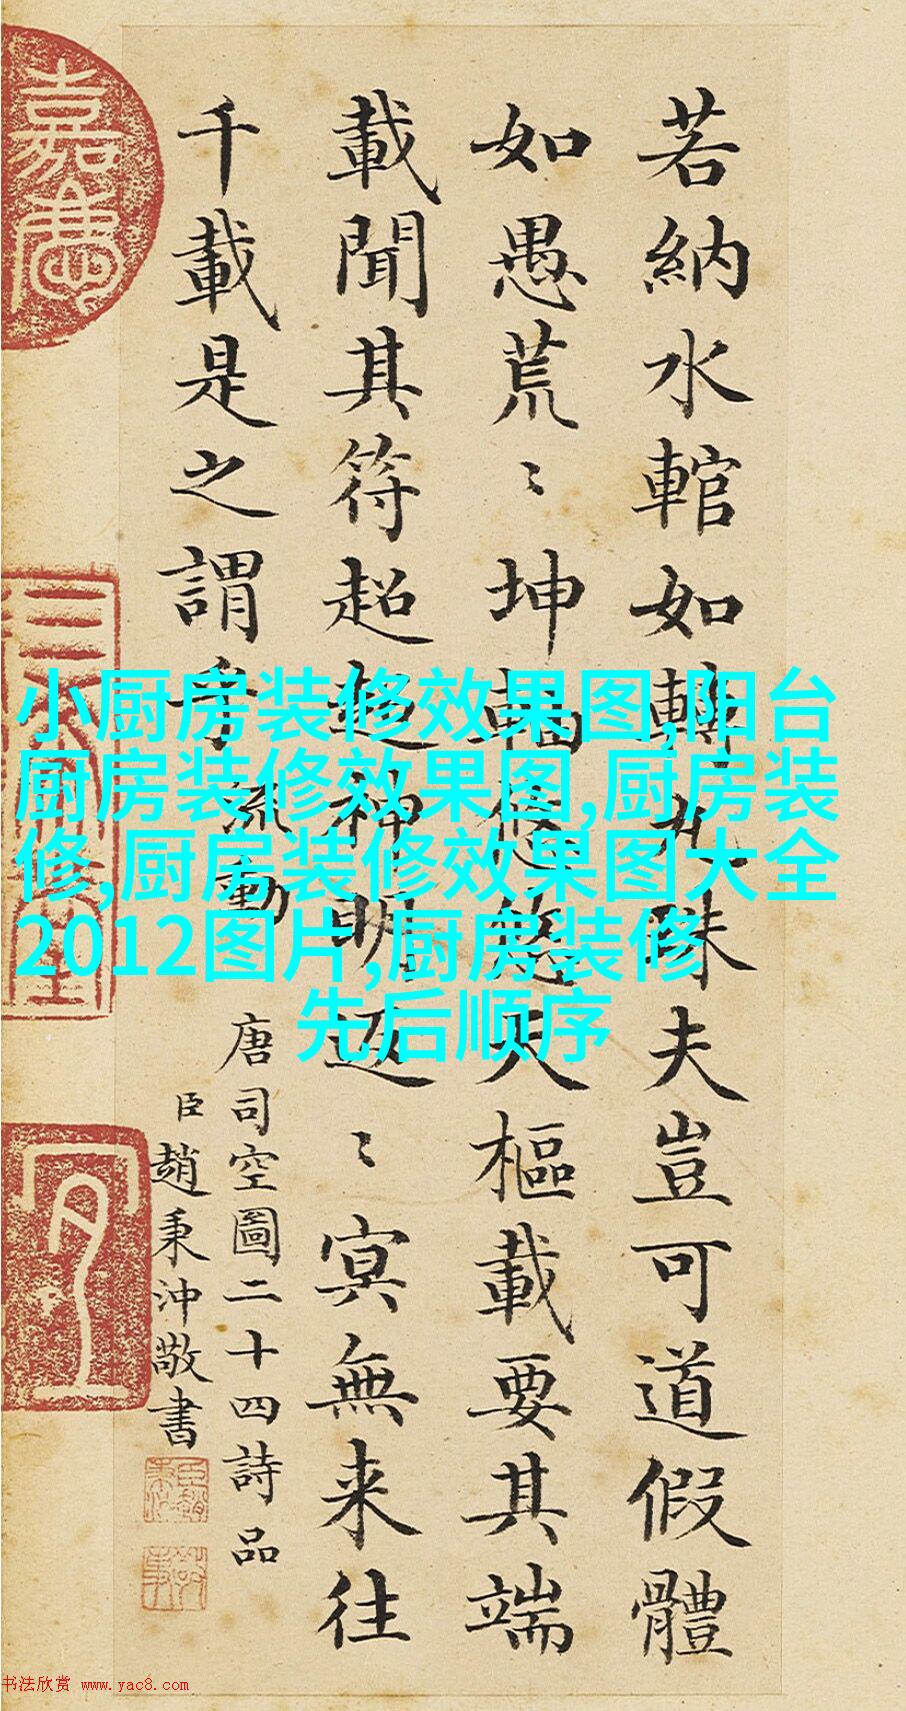 若納水輨如轉丸珠夫豈可道假體
如愚荒〻坤軸悠悠天樞載要其端
載聞其符超超神明返〻冥無来往
千載是之謂乎
流動
唐司空圖二十四詩品
臣趙秉沖敬書
嘉慶
小厨房装修效果图,阳台
厨房装修效果图,厨房装
修,厨房装修效果图大全
2012图片,厨房装修
先后顺序
书法欣赏 www.yac8.com